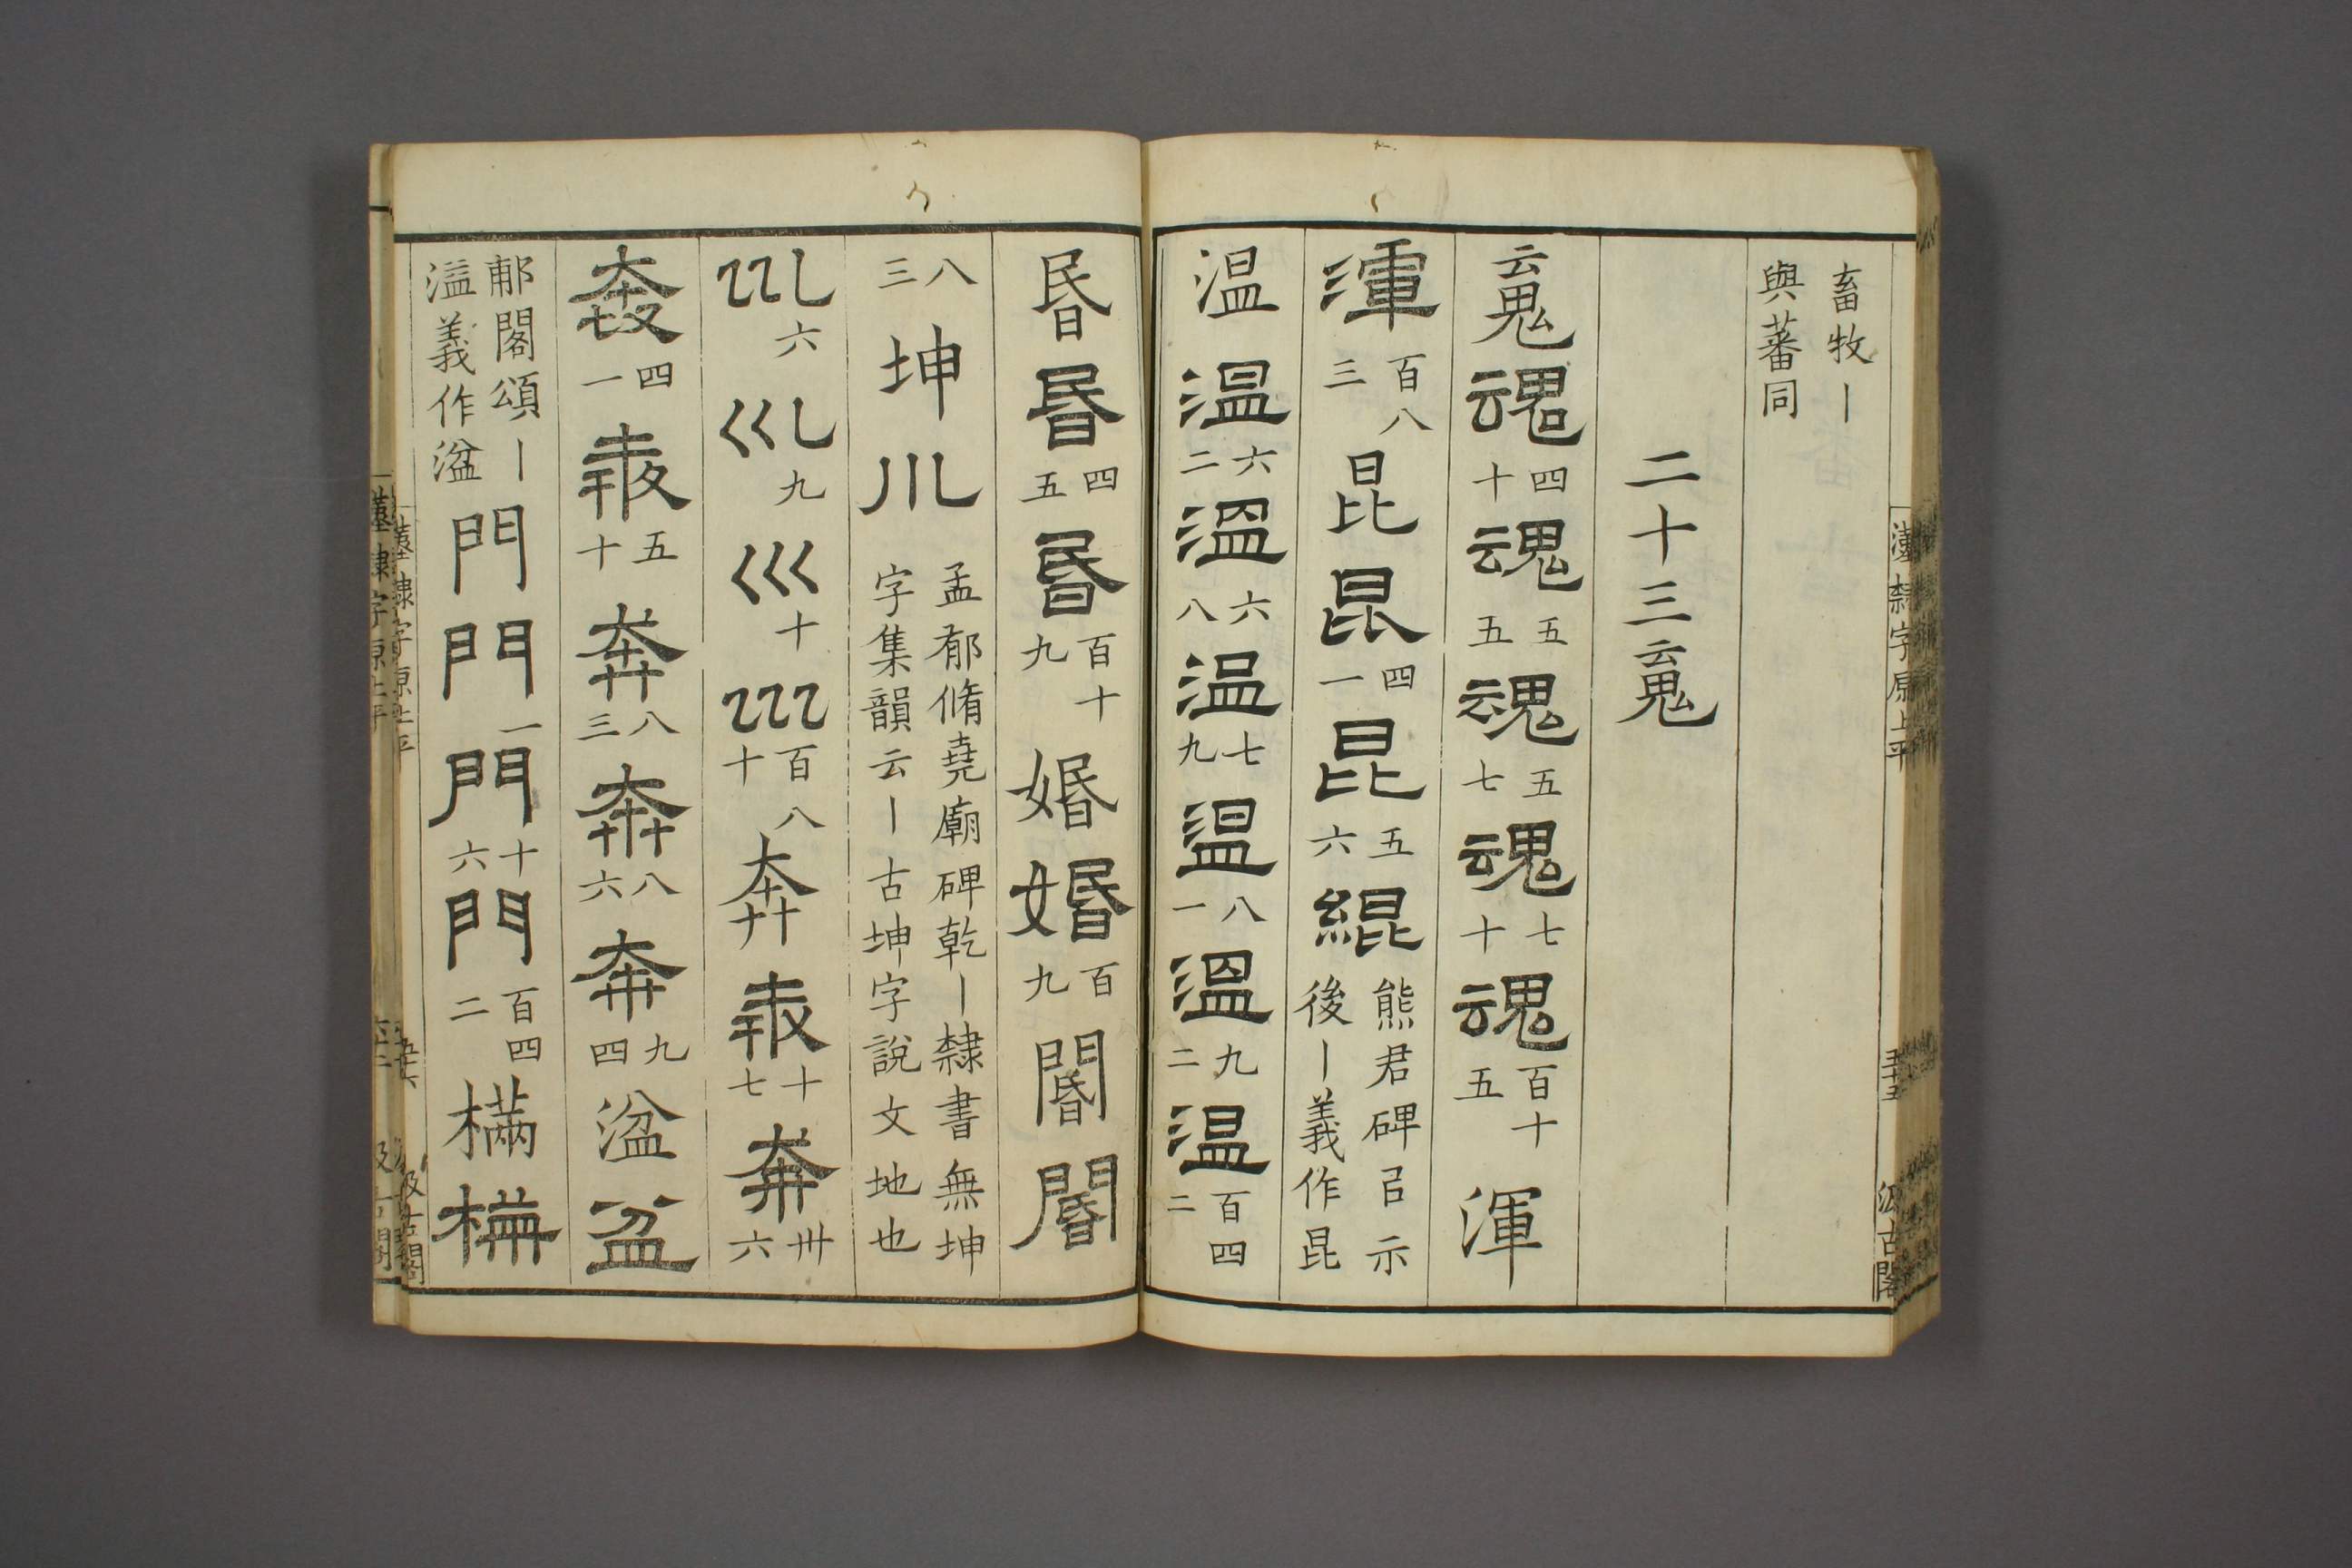 畜牧丨
與蕃同
二十三䰟
䰟魂四十魂五五魂五七魂七十魂百十五渾
渾百八三昆昆四一昆五六緄熊君碑㠯示
後丨義作昆
温温六二溫六八温七九温八一溫九二温百四二
昬昬四五昬百十九婚婚百九閽閽
八三坤川孟郁脩堯廟碑乾丨隸書無坤
字集韻云丨古坤字說文地也
六巛九巛十巛百八十奔十七奔卅六
四一五十奔八三奔八六奔九四湓盆
郙閣頌丨
溢義作湓門門一門十六門百四二樠樠
漢隸字原上平
五十五
汲古閣
漢隸字原上平
汲古閣